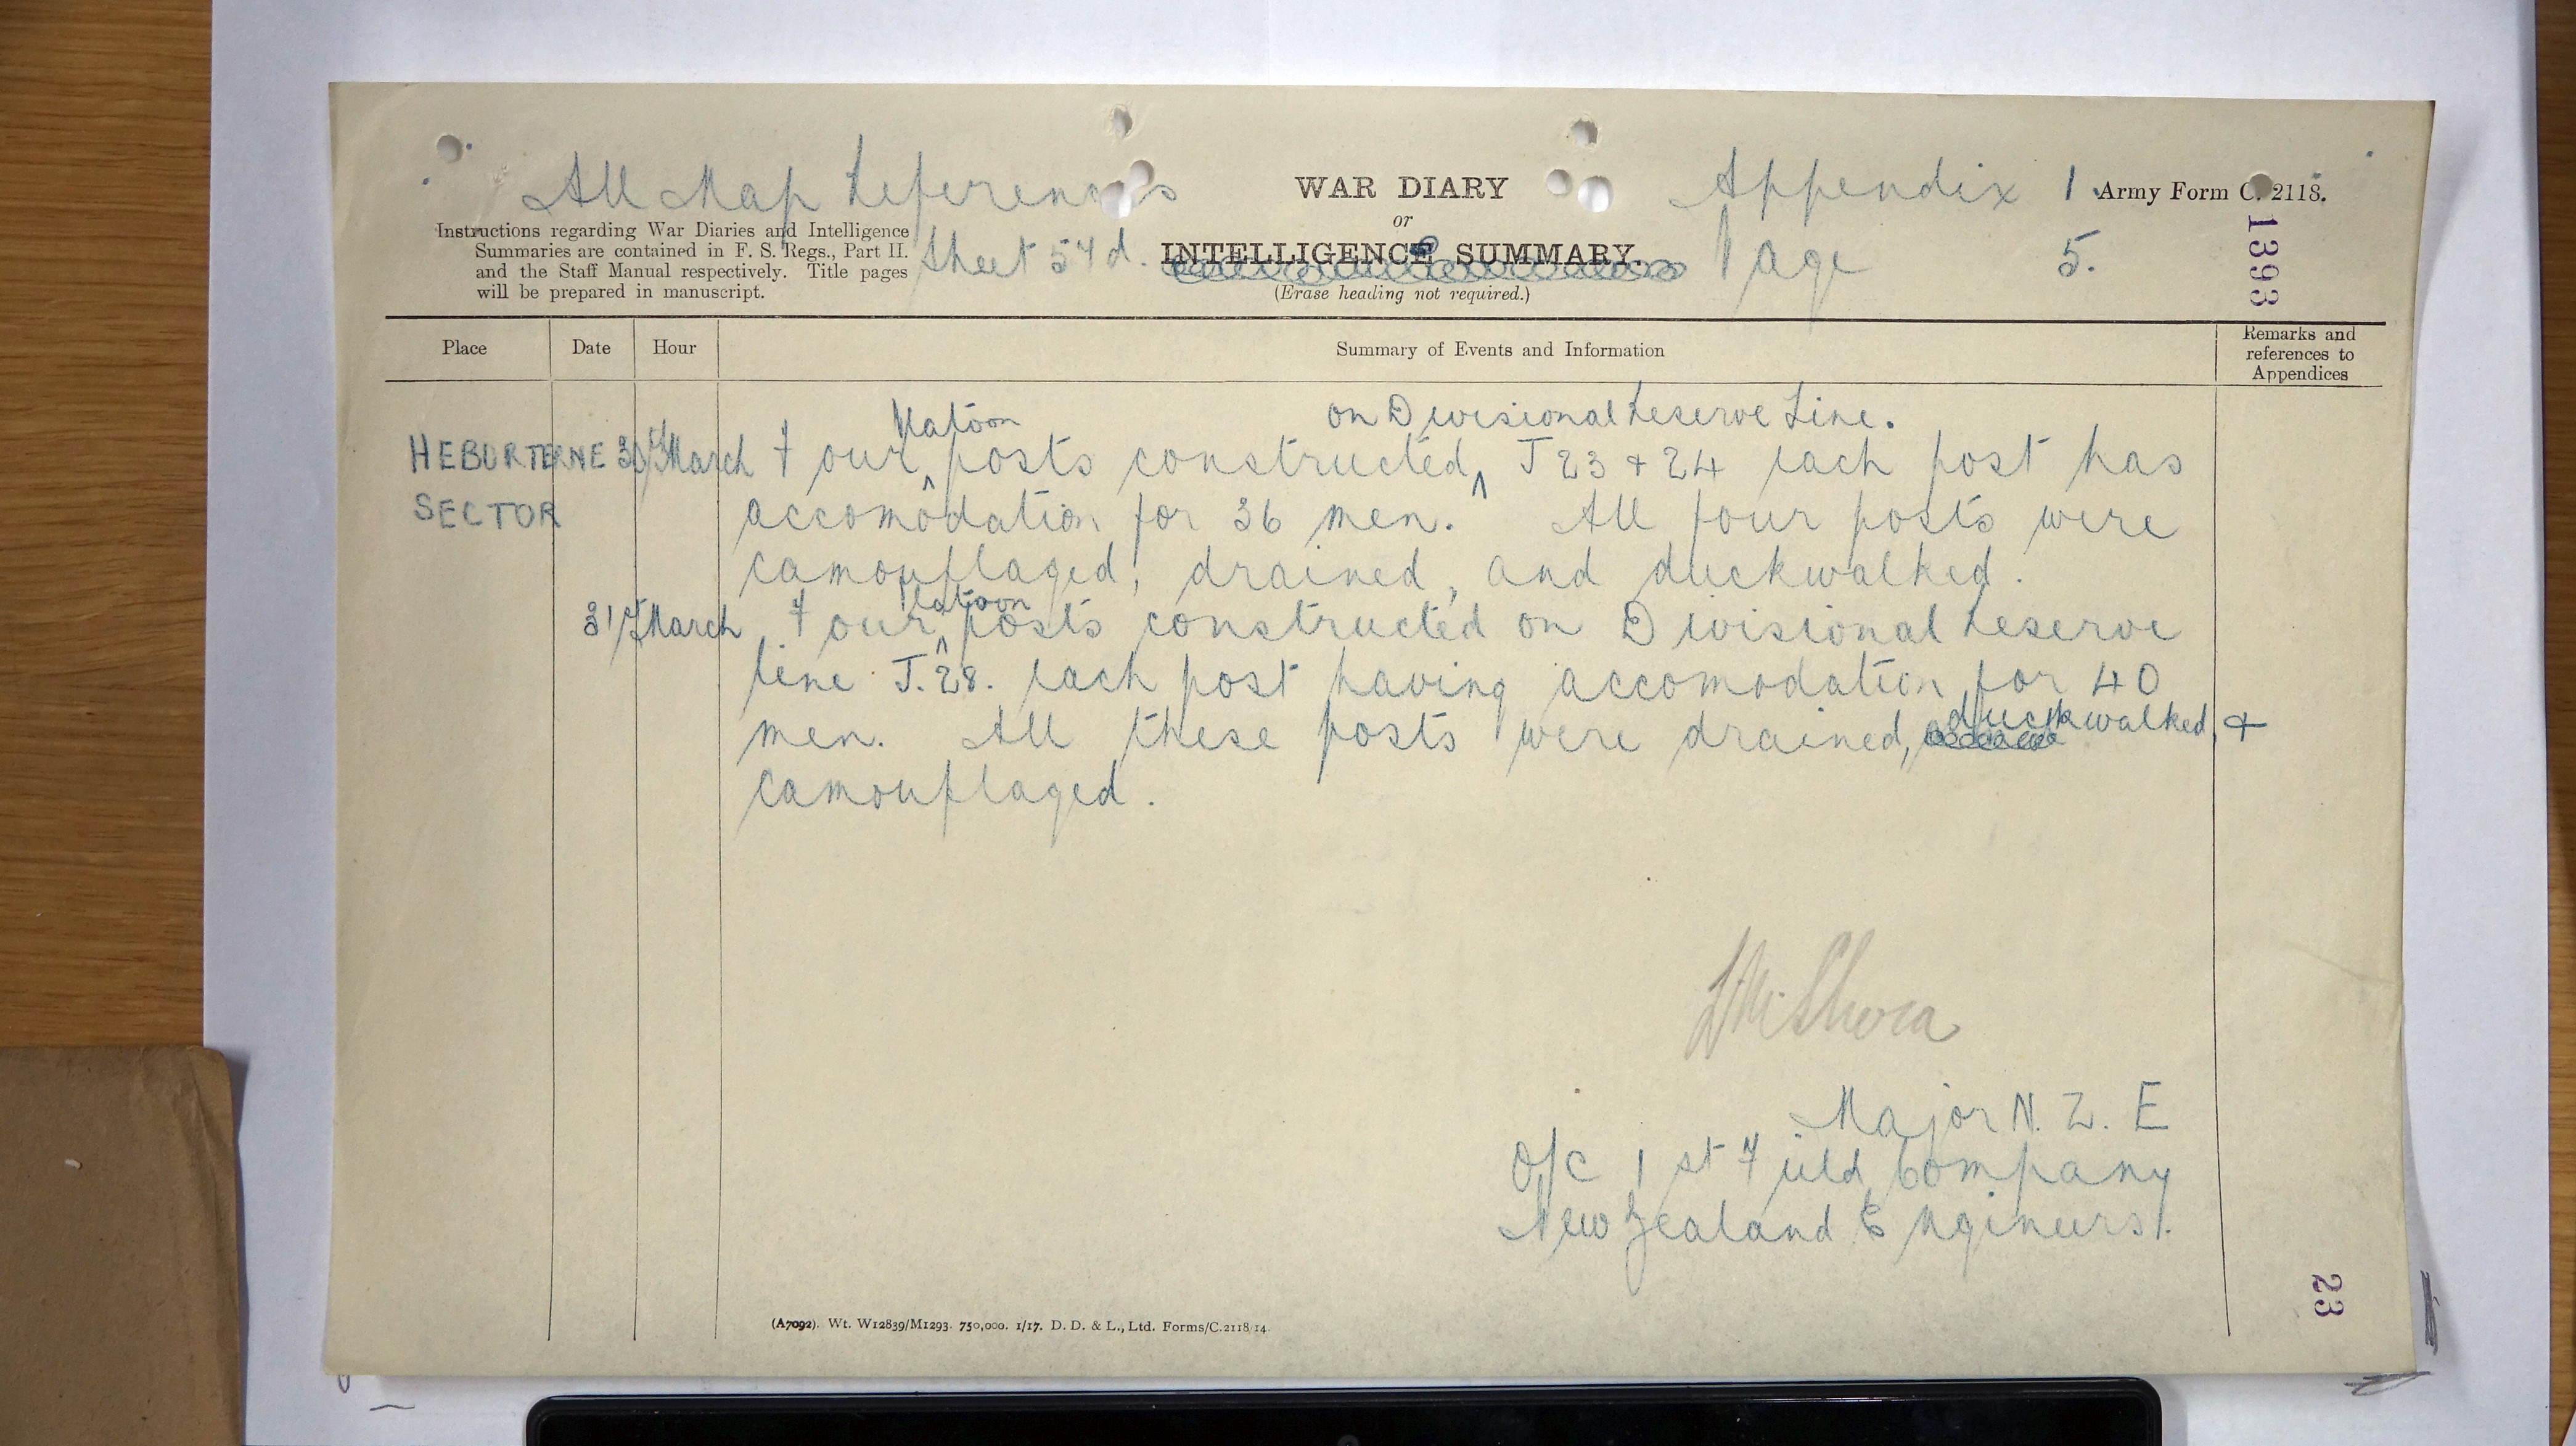 All Map References
WAR DIARY
Appendix 1.
Army Form C. 2118.
or
Instructions regarding War Diaries and Intelligence
Summaries are contained in F. S. Regs., Part II.
and the Staff Manual respectively. Title pages
will be prepared in manuscript.
Sheet 57d.
INTELLIGENCE SUMMARY.
Page 5.
(Erase heading not required.)
1393
Place Date Hour Summary of Events and Information Remarks and
references to
Appendices
Platoon on Divisional Reserve Line.
HEBURTERNE 30th March Four posts constructed J 23 + 24 each post has
SECTOR accomodation for 36 men. All four posts were
camouflaged, drained, and duckwalked.
Platoon
31st March Four posts constructed on Divisional Reserve
line J.28. each post having accomodation for 40
duckwalked, +
men. All these posts were drained,
camouflaged.
Major N. Z. E
O/C 1st Field Company
New Zealand Engineers.
23
(A7092). Wt. W12839/M1293. 750,000. 1/17. D. D. & L., Ltd. Forms/C.2118/14.